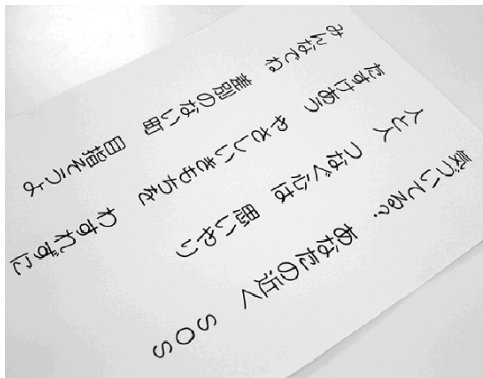 気づいてる? あなたの近く SOS
人と人 つなぐ心は 思いやり
たすけあう やさしいきもちを わすれずに
みんなでね 差別のない町 目指そうよ